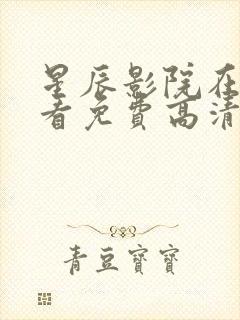 星辰影院在
看免费高清
青豆寶寶